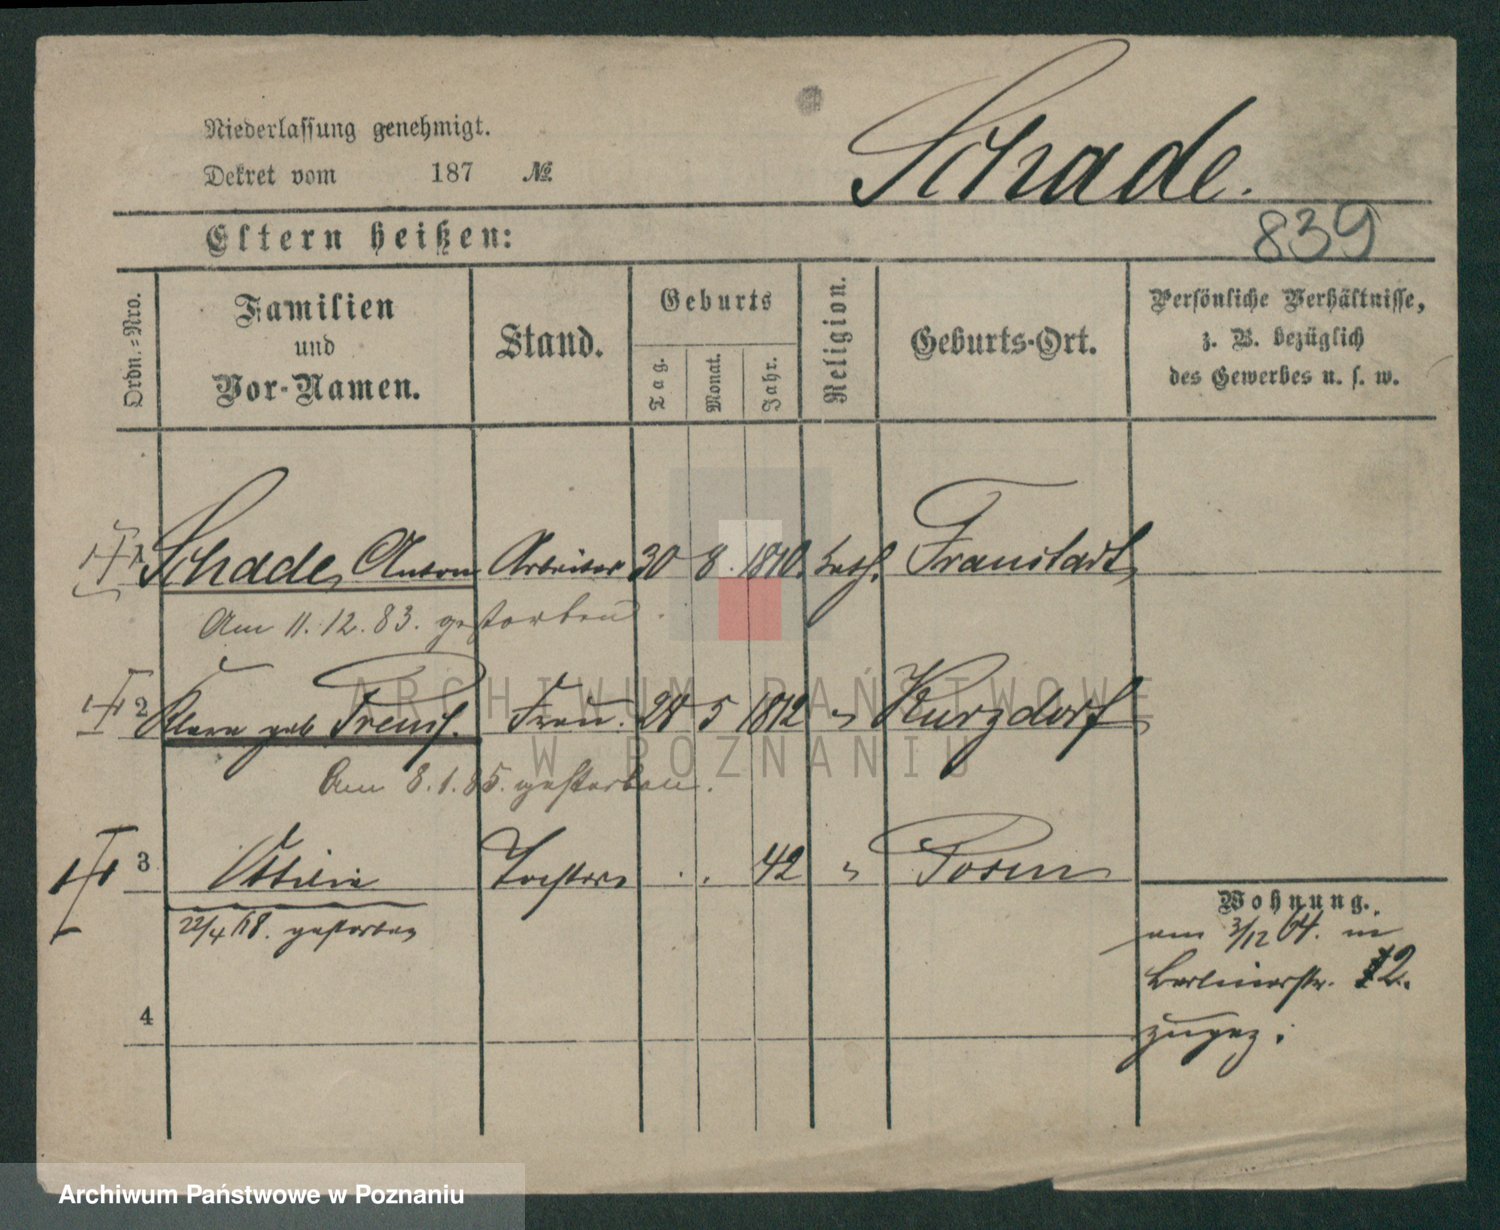 Niederlassung genehmigt.
Dekret vom 187 №
Schade.
Eltern heißen:
839
Ordn.=Nro.
Familien
und
Vor-Namen.
Stand.
Geburts
Tag.
Monat.
Jahr.
Religion.
Geburts-Ort.
Persönliche Verhältnisse,
z. B. bezüglich
des Gewerbes u. s. w.
1 Schade, Anton Arbeiter 30 8. 1810. kath. Fraustadt
Am 11.12.83. gestorben.
2 geb Frau. 28 5 1812 " Kurzdorf
Am 8.1.85. gestorben.
3 Ottilie Tochter . . 42 " Posen
22/4 18. gestorben
4
Wohnung.
am 3/12 64. in
Berlinerstr. 12.
zugez.
ARCHIWUM PAŃSTWOWE
W POZNANIU
Archiwum Państwowe w Poznaniu